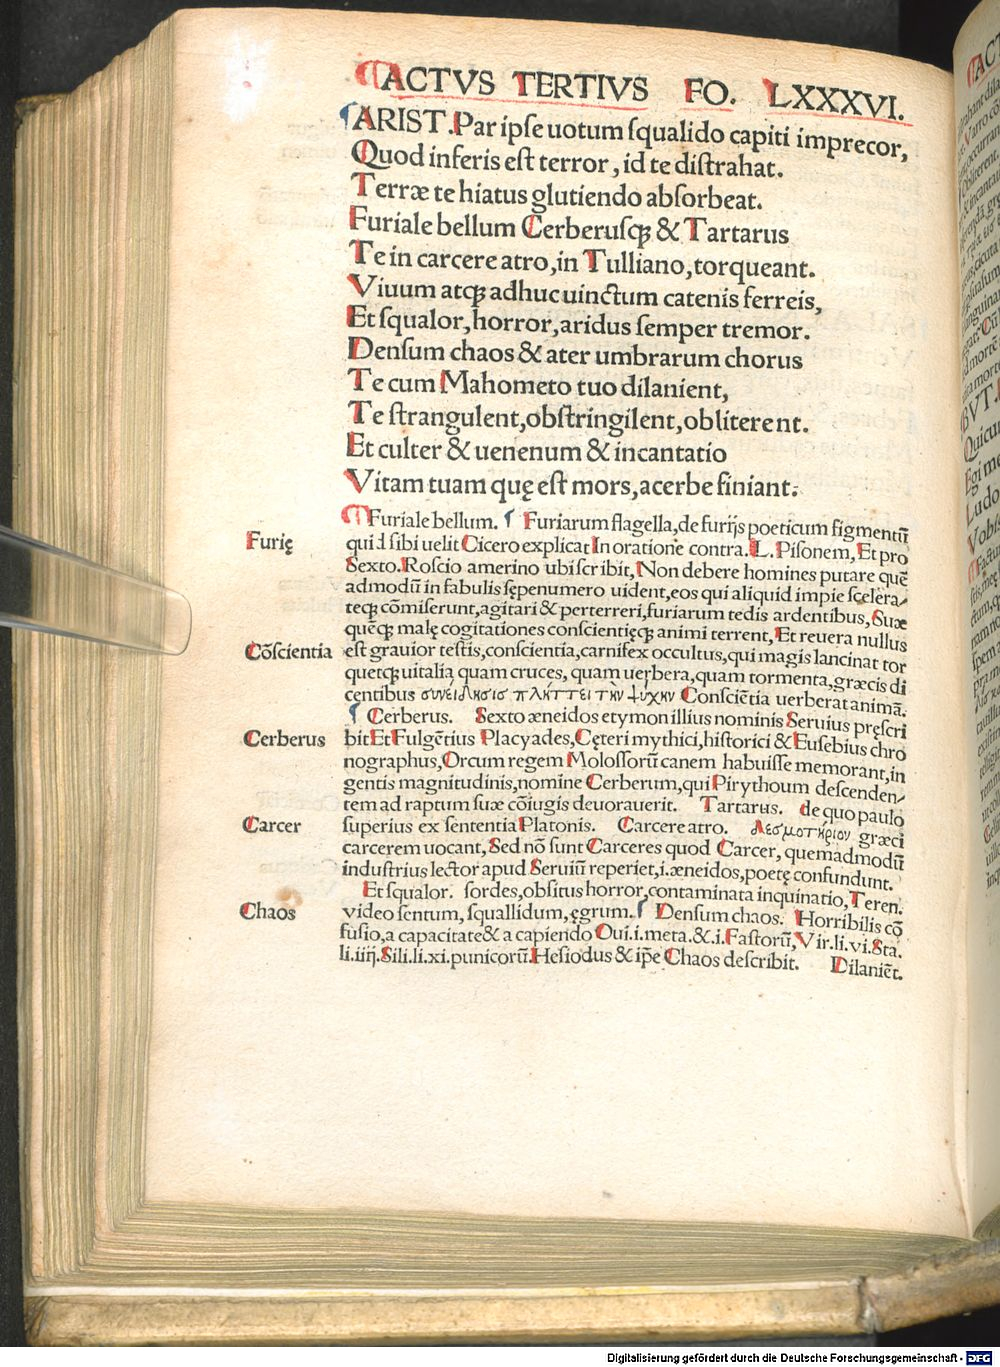 ACTVS TERTIVS FO. LXXXVI.
ARIST. Par ipſe uotum ſqualido capiti imprecor,
Quod inferis eſt terror, id te diſtrahat.
Terræ te hiatus glutiendo abſorbeat.
Furiale bellum Cerberuſqꝫ & Tartarus
Te in carcere atro, in Tulliano, torqueant.
Viuum atqꝫ adhuc uinctum catenis ferreis,
Et ſqualor, horror, aridus ſemper tremor.
Denſum chaos & ater umbrarum chorus
Te cum Mahometo tuo dilanient,
Te ſtrangulent, obſtringilent, obliterent.
Et culter & uenenum & incantatio
Vitam tuam quę eſt mors, acerbe finiant.
Furiale bellum. Furiarum flagella, de furijs poeticum figmentū
Furię
quid ſibi uelit Cicero explicat In oratione contra. L. Piſonem, Et pro
Sexto. Roſcio amerino ubi ſcribit, Non debere homines putare quē
admodū in fabulis ſępenumero uident, eos qui aliquid impie ſcelera/
teqꝫ cōmiſerunt, agitari & perterreri, furiarum tedis ardentibus, Suæ
quēqꝫ malę cogitationes conſcientięqꝫ animi terrent, Et reuera nullus
Cōſcientia
eſt grauior teſtis, conſcientia, carnifex occultus, qui magis lancinat tor
quetqꝫ uitalia quam cruces, quam uerbera, quam tormenta, græcis di
centibus συνείδησισ πλήττει τὴν ψύχην Conſciētia uerberat animā.
Cerberus. Sexto æneidos etymon illius nominis Seruius pręſcri
Cerberus
bit Et Fulgētius Placyades, Cęteri mythici, hiſtorici & Euſebius chro
nographus, Orcum regem Moloſſorū canem habuiſſe memorant, in
gentis magnitudinis, nomine Cerberum, qui Pirythoum deſcenden/
tem ad raptum ſuæ cōiugis deuorauerit. Tartarus. de quo paulo
Carcer
ſuperius ex ſententia Platonis. Carcere atro. Δεσμοτήριον græci
carcerem uocant, Sed nō ſunt Carceres quod Carcer, quemadmodū
induſtrius lector apud Seruiū reperiet, i. æneidos, poetę confundunt.
Et ſqualor. ſordes, obſitus horror, contaminata inquinatio, Teren.
Chaos
video ſentum, ſquallidum, ęgrum. Denſum chaos. Horribilis cō
fuſio, a capacitate & a capiendo Oui. i. meta. & .i. Faſtorū, Vir. li. vi. Sta.
li. iiij. Sili. li. xi. punicorū. Heſiodus & ip̄e Chaos deſcribit. Dilaniēt.
Digitalisierung gefördert durch die Deutsche Forschungsgemeinschaft - DFG